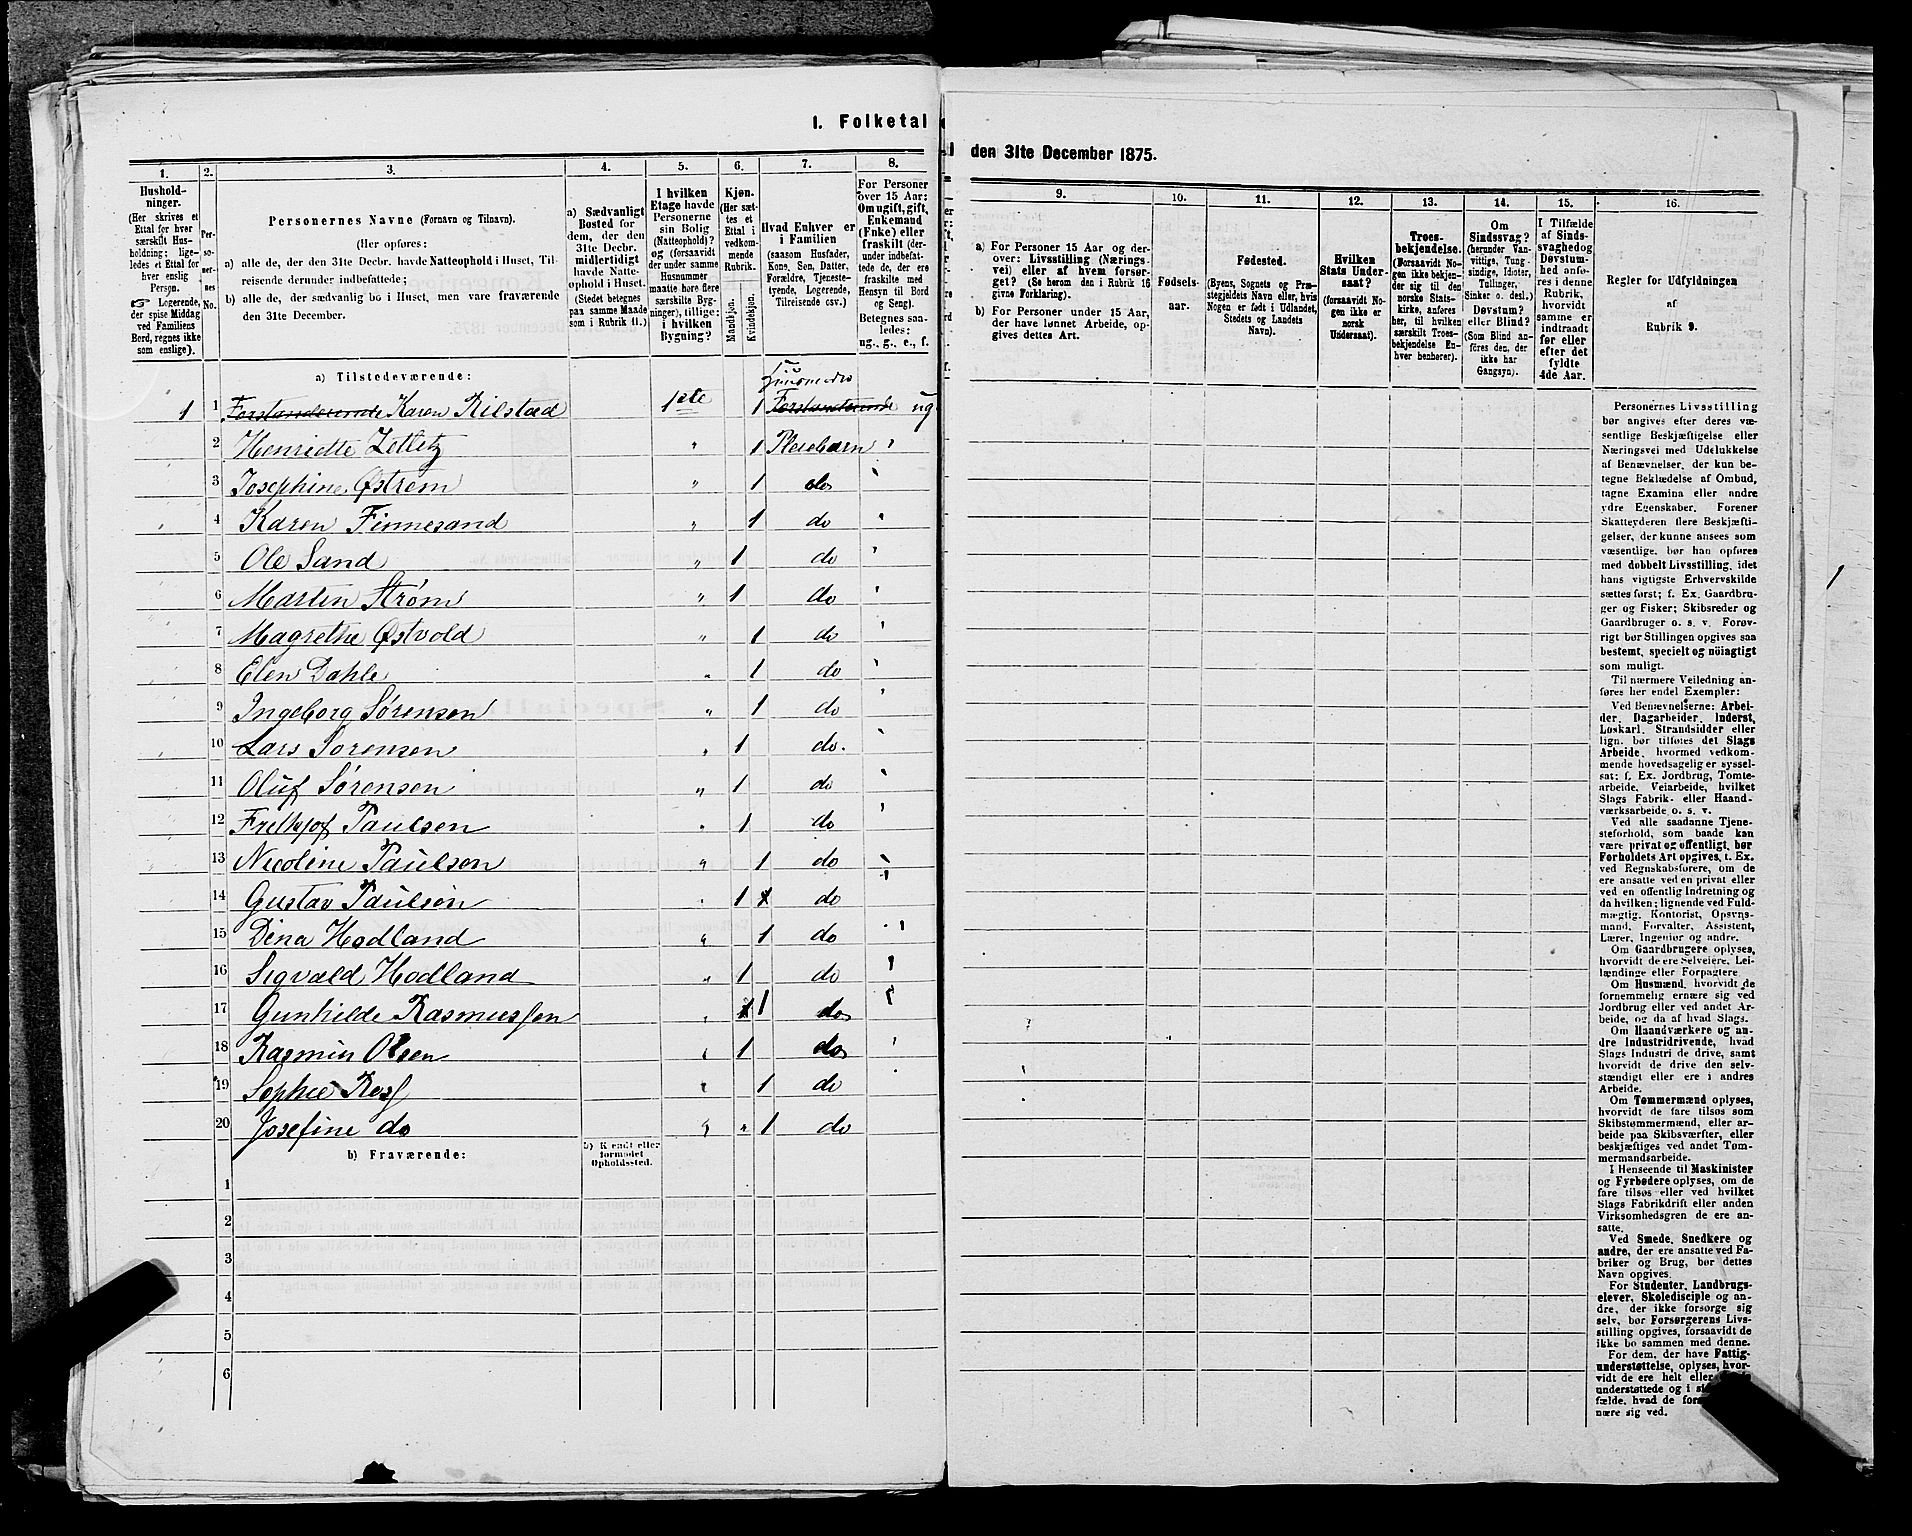 I. Folketal
den 31te December 1875.
1.
Hushold-
ninger.
(Her skrives et
Ettal for hver
særskilt Hus-
holdning; lige-
ledes et Ettal for
hver enslig
Person.
☞ Logerende,
der spise Middag
ved Familiens
Bord, regnes ikke
som enslige).
2.
Per-
so-
ner-
nes
No.
3.
Personernes Navne (Fornavn og Tilnavn).
(Her opføres:
a) alle de, der den 31te Decbr. havde Natteophold i Huset, Til-
reisende derunder indbefattede;
b) alle de, der sædvanlig bo i Huset, men vare fraværende
den 31te December.
4.
a) Sædvanligt
Bosted for
dem, der den
31te Decbr.
midlertidigt
havde Natte-
ophold i Huset.
(Stedet betegnes
paa samme Maade
som i Rubrik 11.)
5.
I hvilken
Etage havde
Personerne
sin Bolig
(Natteophold)?
og (forsaavidt
der under samme
Husnummer
maatte høre flere
særskilte Byg-
ninger), tillige:
i hvilken
Bygning?
6.
Kjøn.
(Her sæt-
tes et
Ettal i
vedkom-
mende
Rubrik.
Mandkjøn.
Kvindekjøn.
7.
Hvad Enhver er
i Familien
(saasom Husfader,
Kone, Søn, Datter,
Forældre, Tjeneste-
tyende, Logerende,
Tilreisende osv.)
8.
For Personer
over 15 Aar:
Om ugift, gift,
Enkemand
(Enke) eller
fraskilt (der-
under indbefat-
tede de, der ere
fraskilte med
Hensyn til Bord
og Seng).
Betegnes saa-
ledes:
ug., g., e., f.
9.
a) For Personer 15 Aar og der-
over: Livsstilling (Nærings-
vei) eller af hvem forsør-
get? (Se herom den i Rubrik 16
givne Forklaring).
b) For Personer under 15 Aar,
der have lønnet Arbeide, op-
gives dettes Art.
10.
Fødsels-
aar.
11.
Fødested.
(Byens, Sognets og Præ-
stegjeldets Navn eller, hvis
Nogen er født i Udlandet,
Stedets og Landets
Navn).
12.
Hvilken
Stats Under-
saat?
(forsaavidt No-
gen ikke er
norsk
Undersaat).
13.
Troes-
bekjendelse.
(Forsaavidt No-
gen ikke bekjen-
der sig til den
norske Stats-
kirke, anføres
her, til hvilken
særskilt Troes-
bekjendelse En-
hver henhører).
14.
Om
Sindssvag?
(herunder Van-
vittige, Tung-
sindige, Idioter,
Tullinger,
Sinker o. desl.)
Døvstum?
eller Blind?
(Som Blind an-
føres den, der
ikke har
Gangsyn).
15.
I Tilfælde
af Sinds-
svaghed og
Døvstum-
hed anfø-
res i denne
Rubrik,
hvorvidt
samme er
indtraadt
før eller
efter det
fyldte
4de Aar.
16.
Regler for Udfyldningen
af
Rubrik 9.
a) Tilstedeværende:
1 1 Forstanderinde Karen Rilstad 1ste 1 Forstanderinde ug
2 Henriette Zetlitz " 1 Pleiebarn '
3 Josephine Østrem " 1 do '
4 Karen Finnesand " 1 do '
5 Ole Sand " 1 do '
6 Martin Strøm " 1 do '
7 Magrethe Østvold " 1 do '
8 Elen Dahle " 1 do '
9 Ingeborg Sørensen " 1 do '
10 Lars Sorensen " 1 do. '
11 Oluf Sørensen " 1 do '
12 Frithjof Paulsen " 1 do '
13 Nicoline Paulsen " 1 do '
14 Gustav Paulsen " 1 1 do '
15 Dina Hodland " 1 do '
16 Sigvald Hodland " 1 do '
17 Gunhilde Rasmussen " 1 1 do '
18 Rasmus Olsen " 1 do '
19 Sophie Ross " 1 do
20 Josefine do " " 1 do
b) Fraværende:
b) Kjendt eller
formodet
Opholdssted.
1
2
3
4
5
6
Personernes Livsstilling
bør angives efter deres væ-
sentlige Beskjæftigelse eller
Næringsvei med Udelukkelse
af Benævnelser, der kun be-
tegne Beklædelse af Ombud,
tagne Examina eller andre
ydre Egenskaber. Forener
Skatteyderen flere Beskjæfti-
gelser, der kunne ansees som
væsentlige, bør han opføres
med dobbelt Livsstilling, idet
hans vigtigste Erhvervskilde
sættes først; f. Ex. Gaardbru-
ger og Fisker; Skibsreder og
Gaardbruger o. s. v. Forøv-
rigt bør Stillingen opgives saa
bestemt, specielt og nöiagtigt
som muligt.
Til nærmere Veiledning an-
føres her endel Exempler:
Ved Benævnelserne: Arbei-
der, Dagarbeider, Inderst,
Løskarl, Strandsidder eller
lign. bør tilføies det Slags
Arbeide, hvormed vedkom-
mende hovedsagelig er syssel-
sat: f. Ex. Jordbrug, Tomte-
arbeide, Veiarbeide, hvilket
Slags Fabrik- eller Haand-
værksarbeide o. s. v.
Ved alle saadanne Tjene-
steforhold, som baade kan
være privat og offentligt, bør
Forholdets Art opgives, t. Ex.
ved Regnskabsførere, om de
ere ansatte ved en privat eller
ved en offentlig Indretning og
da hvilken; lignende ved Fuld-
mægtig, Kontorist, Opsyns-
mand, Forvalter, Assistent,
Lærer, Ingeniør og andre.
Om Gaardbrugere oplyses,
hvorvidt de ere Selveiere, Lei-
lændinge eller Forpagtere.
Om Husmænd, hvorvidt de
fornemmelig ernære sig ved
Jordbrug eller ved andet Ar-
beide, og da af hvad Slags.
Om Haandværkere og an-
dre Industridrivende, hvad
Slags Industri de drive, samt
hvorvidt de drive den selv-
stændigt eller ere i andres
Arbeide.
Om Tømmermænd oplyses,
hvorvidt de fare tilsøs som
Skibstømmermænd, eller ar-
beide paa Skibsværfter, eller
beskjæftiges ved andet Tøm-
mermandsarbeide.
I Henseende til Maskinister
og Fyrbødere oplyses, om de
fare tilsøs eller ved hvilket
Slags Fabrikdrift eller anden
Virksomhedsgren de ere an-
satte.
Ved Smede, Snedkere og
andre, der ere ansatte ved Fa-
briker og Brug, bør dettes
Navn opgives.
For Studenter, Landbrugs-
elever, Skoledisciple og an-
dre, der ikke forsørge sig
selv, bør Forsørgerens Livs-
stilling opgives, forsaavidt de
ikke bo sammen med denne.
For dem, der have Fattig-
understøttelse, oplyses, hvor-
vidt de ere helt eller
understøttede og i
fælde, hvad de
nære sig ved.